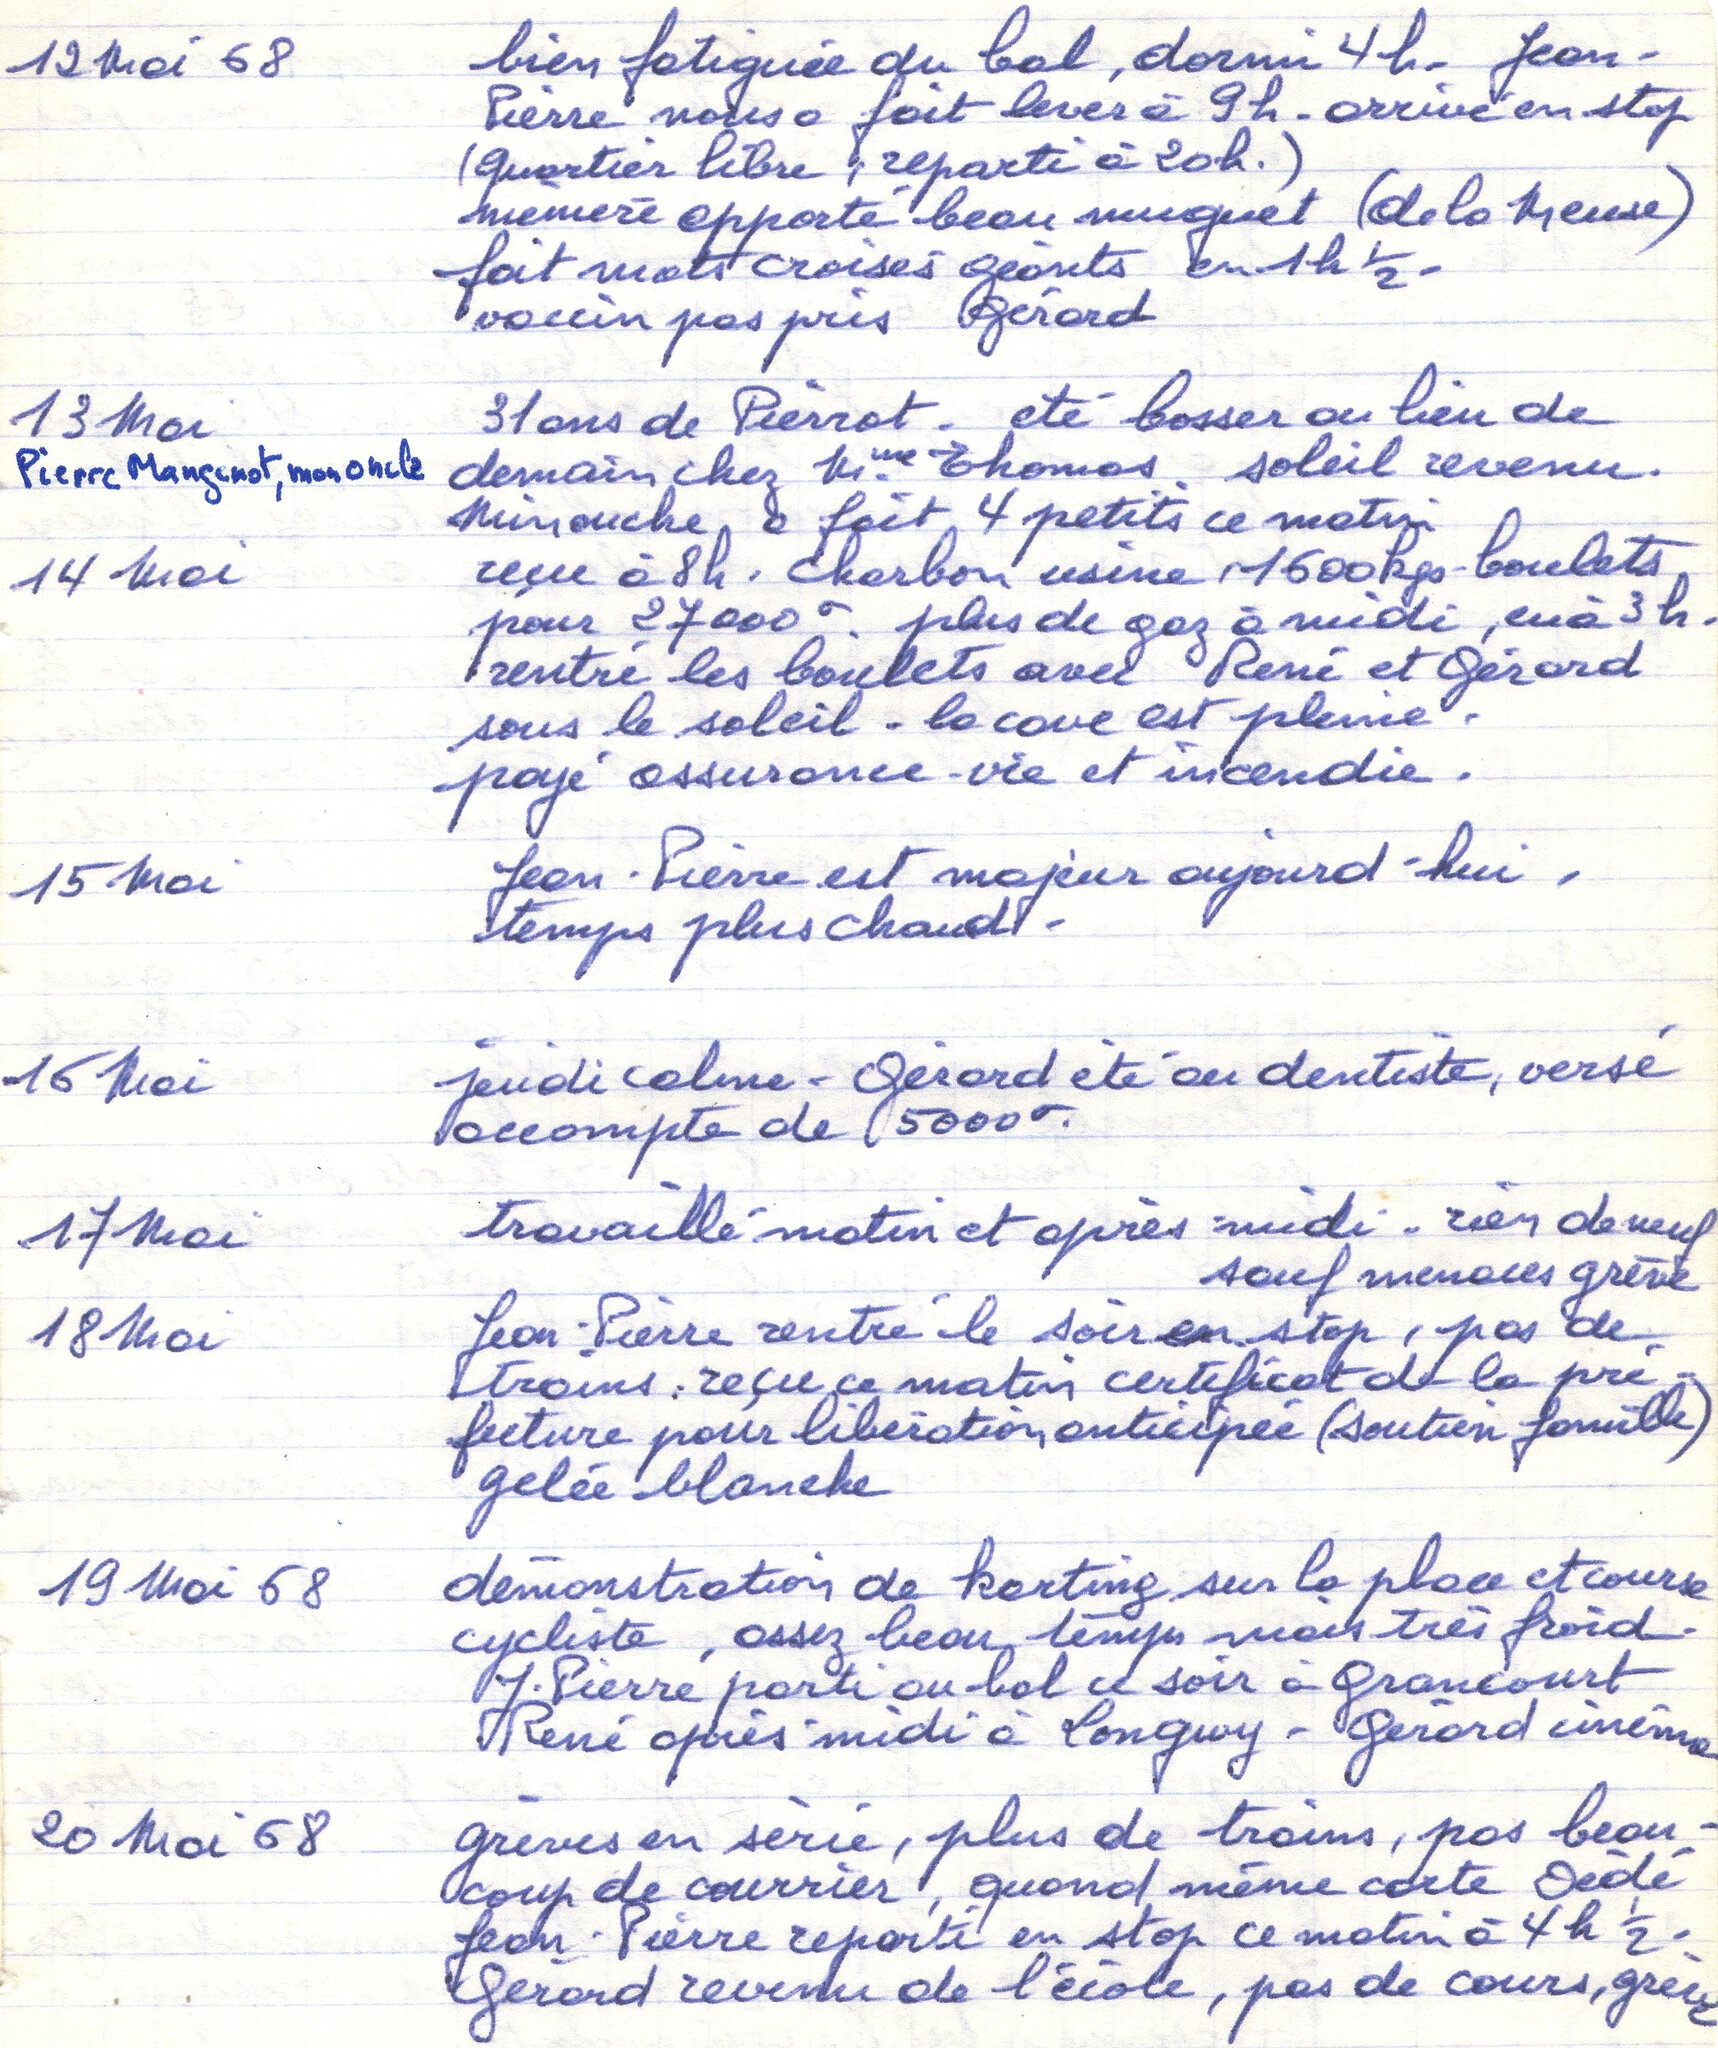 12 Mai 68 bien fatiguée du bal, dormi 4 h. Jean-
Pierre nous a fait lever à 9 h. arrivé en stop
(quartier libre, reparti à 20 h.)
mémère apporté beau muguet (de la Meuse)
fait mots croisés géants en 1 h ½.
vaccin pas pris Gérard
13 Mai 31 ans de Pierrot. été bosser au lieu de
Pierre Mangenot, mon oncle demain chez Mme Thomas. soleil revenu.
Minouche a fait 4 petits ce matin
14 Mai reçu à 8 h. charbon usine, 1600 kgs boulets
pour 27000 F. plus de gaz à midi, eu à 3 h.
rentré les boulets avec René et Gérard
sous le soleil. la cave est pleine.
payé assurance-vie et incendie.
15 Mai Jean-Pierre est majeur aujourd-hui,
temps plus chaud.
16 Mai jeudi calme - Gérard été au dentiste, versé
accompte de 5000 F.
17 Mai travaillé matin et après-midi. rien de neuf
sauf menaces grève
18 Mai Jean-Pierre rentré le soir en stop, pas de
trains. reçu ce matin certificat de la pré-
fecture pour libération anticipée (soutien famille)
gelée blanche
19 Mai 68 démonstration de karting sur la place et course
cycliste, assez beau temps mais très froid.
J. Pierre parti au bal ce soir à Grancourt
René après-midi à Longwy - Gérard cinéma
20 Mai 68 grèves en série, plus de trains, pas beau-
coup de courrier, quand même carte Dédé
Jean-Pierre reparti en stop ce matin à 4 h ½.
Gérard revenu de l'école, pas de cours, grève